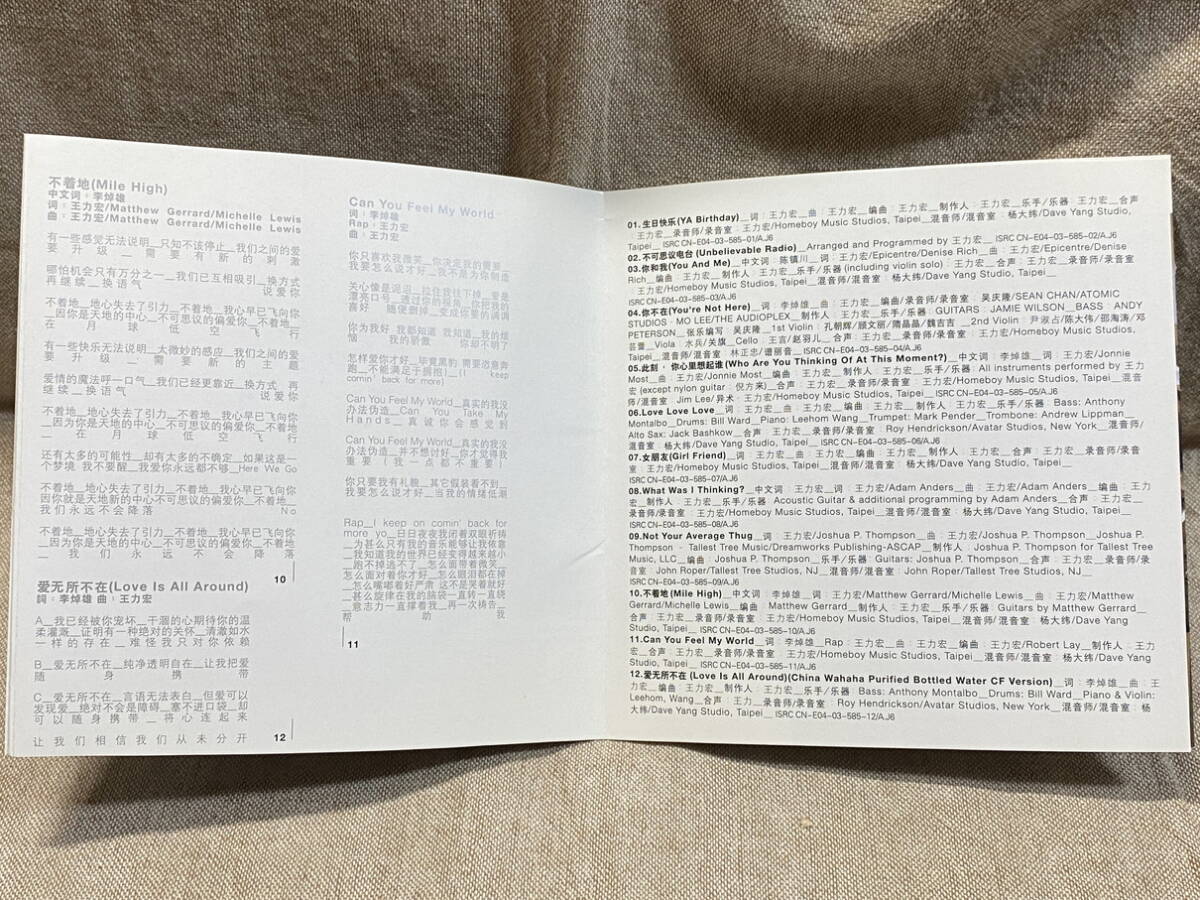 不着地(Mile High)
中文词：李焯雄
词：王力宏/Matthew Gerrard/Michelle Lewis
曲：王力宏/Matthew Gerrard/Michelle Lewis
有一些感觉无法说明__只知不该停止__我们之间的爱
要升级__需要有新的刺激
哪怕机会只有万分之一__我们已互相吸引__换方式
再继续__换语气 说爱你
不着地__地心失去了引力__不着地__我心早已飞向你
__因你是天地的中心__不可思议的偏爱你__不着地__
在月球低空飞行
有一些快乐无法说明__太微妙的感应__我们之间的爱
要升级__需要新的主题
爱情的魔法呼一口气__我们已经更靠近__换方式 再
继续__换语气 说爱你
不着地__地心失去了引力__不着地__我心早已飞向你
__因为你是天地的中心__不可思议的偏爱你__不着地
__在月球低空飞行
还有太多的可能性__却有太多的不确定__如果这是一
个梦境 我不要醒__我爱你永远都不够__Here We Go
不着地__地心失去了引力__不着地__我心早已飞向你
因你就是天地新的中心不可思议的偏爱你__不着地__
我们永远不会降落 No
不着地__地心失去了引力__不着地__我心早已飞向你
__因为你是天地的中心__不可思议的偏爱你__不着地
__我们永远不会降落
10
爱无所不在(Love Is All Around)
詞：李焯雄 曲：王力宏
A__我已经被你宠坏__干涸的心期待你的温
柔灌溉__证明有一种绝对的关怀__清澈如水
一样的存在__难怪我只对你依赖
B__爱无所不在__纯净透明自在__让我把爱
随身携带
C__爱无所不在__言语无法表白__但爱可以
发现爱__绝对不会是障碍__塞不进口袋__却
可以随身携带__将心连起来
让我们相信我们从未分开
12
Can You Feel My World
词：李焯雄
Rap：王力宏
曲：王力宏
你只喜欢我微笑__你决定我的需要__
我要怎么说才好__我不是为你制造
关心像是说滔__拉住我往下掉__爱是
漂亮口号__透过你的视角__你把我的
喜好__随便删掉__变成你要的调调
你为我好 我都知道 我知道__我的懊
恼__我的骄傲__你却不明了
怎样爱你才好__毕竟黑豹 需要恣意奔
跑__不能满足于拥抱__(I keep
comin' back for more)
Can You Feel My World__真实的我没
办法伪造__Can You Take My
Hands__真诚你会感觉到
Can You Feel My World__真实的我没
办法伪造__并不想讨好__你才觉得我
重要（我一点都不重要）
你只要我有礼貌__其它假装看不到__
我要怎么说才好__当我的情绪低潮
Rap__I keep on comin' back for
more yo__日日夜夜我闭着双眼祈祷
__为甚么只有我的音乐能够让我依靠
__我知道我的世界已经变得越来越小
__跑不掉逃不了__怎么面带着微笑__
怎么面对着你才好__怎么眼泪都在掉
__怎么嘴嘟着好严肃 这不是哭着就好
__甚么旋律在我的脑袋一直转一直绕
__意志力一直撑着我__再一次祷告__
帮助我
11
01.生日快乐(YA Birthday)__词：王力宏__曲：王力宏__编曲：王力宏__制作人：王力宏__乐手/乐器：王力宏__合声
：王力宏__录音师/录音室：王力宏/Homeboy Music Studios, Taipei__混音师/混音室：杨大纬/Dave Yang Studio,
Taipei__ ISRC CN-E04-03-585-01/A.J6
02.不可思议电台 (Unbelievable Radio)__Arranged and Programmed by 王力宏__ISRC CN-E04-03-585-02/A.J6
03.你和我(You And Me)__中文词：陈镇川__词：王力宏/Epicentre/Denise Rich__曲：王力宏/Epicentre/Denise
Rich__编曲：王力宏__制作人：王力宏__乐手/乐器(including violin solo)：王力宏__合声：王力宏__录音师/录音室
：王力宏/Homeboy Music Studios, Taipei__混音师/混音室：杨大纬/Dave Yang Studio, Taipei__
ISRC CN-E04-03-585-03/A.J6
04.你不在(You're Not Here)__词：李焯雄__曲：王力宏__编曲/录音师/录音室：吴庆隆/SEAN CHAN/ATOMIC
STUDIOS · MO LEE/THE AUDIOPLEX__制作人：王力宏__乐手/乐器：GUITARS：JAMIE WILSON__BASS：ANDY
PETERSON__张乐编写：吴庆隆__1st Violin：孔朝辉/顾文丽/隋晶晶/魏吉吉__2nd Violin：尹淑占/陈大伟/邵海涛/邓
芸萱__Viola：水兵/关旗__Cello：王言/赵羽儿__合声：王力宏__录音师/录音室：王力宏/Homeboy Music Studios,
Taipei__混音师/混音室：林正忠/谱丽音__ISRC CN-E04-03-585-04/A.J6
05.此刻，你心里想起谁(Who Are You Thinking Of At This Moment?)__中文词：李焯雄__词：王力宏/Jonnie
Most__曲：王力宏/Jonnie Most__编曲：王力宏__制作人：王力宏__乐手/乐器：All instruments performed by 王力
宏 (except nylon guitar：倪方来)__合声：王力宏__录音师/录音室：王力宏/Homeboy Music Studios, Taipei__混音
师/混音室：Jim Lee/异术：王力宏/Homeboy Music Studios, Taipei__ISRC CN-E04-03-585-05/A.J6
06.Love Love Love__词：王力宏__曲：王力宏__编曲：王力宏__制作人：王力宏__乐手/乐器：Bass: Anthony
Montalbo__Drums: Bill Ward__Piano: Leehom Wang__Trumpet: Mark Pender__Trombone: Andrew Lippman__
Alto Sax: Jack Bashkow__合声：王力宏__录音师/录音室：Roy Hendrickson/Avatar Studios, New York__混音师/
混音室：杨大纬/Dave Yang Studio, Taipei__ISRC CN-E04-03-585-06/A.J6
07.女朋友(Girl Friend)__词：王力宏__曲：王力宏__编曲：王力宏__制作人：王力宏__合声：王力宏__录音师/录音
室：王力宏/Homeboy Music Studios, Taipei__混音师/混音室：杨大纬/Dave Yang Studio, Taipei__
ISRC CN-E04-03-585-07/A.J6
08.What Was I Thinking?__中文词：王力宏__词：王力宏/Adam Anders__曲：王力宏/Adam Anders__编曲：王力
宏__制作人：王力宏__乐手/乐器：Acoustic Guitar & additional programming by Adam Anders__合声：王力宏__
录音师/录音室：王力宏/Homeboy Music Studios, Taipei__混音师/混音室：杨大纬/Dave Yang Studio, Taipei__
ISRC CN-E04-03-585-08/A.J6
09.Not Your Average Thug__词：王力宏/Joshua P. Thompson__曲：王力宏/Joshua P. Thompson__Joshua P.
Thompson - Tallest Tree Music/Dreamworks Publishing-ASCAP__制作人：Joshua P. Thompson for Tallest Tree
Music, LLC__编曲：Joshua P. Thompson__乐手/乐器: Guitars: Joshua P. Thompson__合声：王力宏__录音师/录
音室：John Roper/Tallest Tree Studios, NJ__混音师/混音室：John Roper/Tallest Tree Studios, NJ__
ISRC CN-E04-03-585-09/A.J6
10.不着地(Mile High)__中文词：李焯雄__词：王力宏/Matthew Gerrard/Michelle Lewis__曲：王力宏/Matthew
Gerrard/Michelle Lewis__编曲：Matthew Gerrard__制作人：王力宏__乐手/乐器：Guitars by Matthew Gerrard__
合声：王力宏__录音师/录音室：王力宏/Homeboy Music Studios, Taipei__混音师/混音室：杨大纬/Dave Yang
Studio, Taipei__ISRC CN-E04-03-585-10/A.J6
11.Can You Feel My World__词：李焯雄__Rap：王力宏__曲：王力宏__编曲：王力宏/Robert Lay__制作人：王力
宏__合声：王力宏__录音师/录音室：王力宏/Homeboy Music Studios, Taipei__混音师/混音室：杨大纬/Dave Yang
Studio, Taipei__ISRC CN-E04-03-585-11/A.J6
12.爱无所不在 (Love Is All Around)(China Wahaha Purified Bottled Water CF Version)__词：李焯雄__曲：王
力宏__编曲：王力宏__制作人：王力宏__乐手/乐器 Bass: Anthony Montalbo__Drums: Bill Ward__Piano & Violin:
Leehom, Wang__合声：王力宏__录音师/录音室：Roy Hendrickson/Avatar Studios, New York__混音师/混音室：杨
大纬/Dave Yang Studio, Taipei__ISRC CN-E04-03-585-12/A.J6